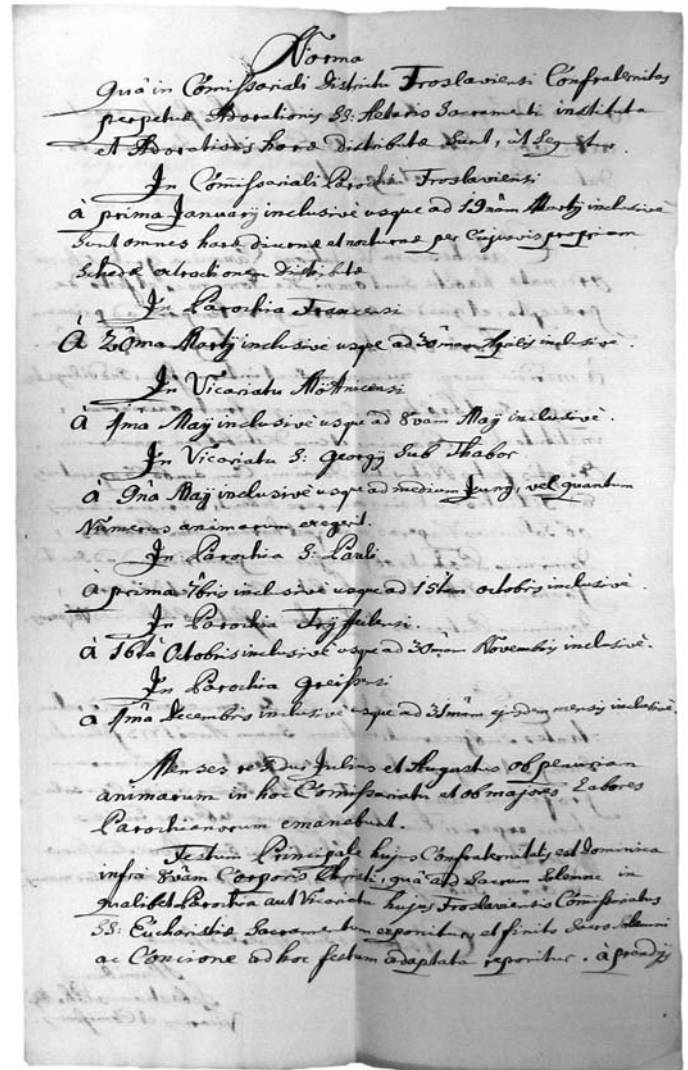 Norma
Quâ in Com̄issariali Districtu Froslaviensi Confraternitas
perpetuæ Adorationis SS: Altaris Sacramenti instituta
et Adorationis horæ distributæ sunt, ùt sequitur.
In Com̄issariali Parochia Froslaviensi
à prima Januarij inclusivè usque ad 19nam Martij inclusivè
sunt omnes horæ diurnæ et nocturnæ per cujusvis propriam
schedæ extractionem distributæ
In Parochia Francensi
à 20ma Martij inclusivè usque ad 30mam Aprilis inclusivè.
In Vicariatu Möttnicensi
à 1ma Maij inclusivè usque ad 8vam Maij inclusivè.
In Vicariatu S: Georgij sub Thabor
à 9na Maij inclusivè usque ad medium Junij, vel quantum
Numerus animarum exegerit.
In Parochia S: Pauli
à prima 7bris inclusivè usque ad 15tam octobris inclusivè.
In Parochia Fryffeilensi.
à 16ta Octobris inclusivè usque ad 30mam Novembris inclusivè.
In Parochia Greissensi
à 1ma Decembris inclusivè usque ad 31mam ejusdem mensis inclusivè.
Menses residui Julius et Augustus ob penuriam
animarum in hoc Com̄issariatu et ob majores Labores
Parochianorum emanebunt.
Festum Principale hujus Confraternitatis est Dominica
infra 8vam Corporis Christi, quâ ad Sacrum solemne in
qualibet Parochia aut Vicariatu hujus Froslaviensis Com̄issariatus
SS: Eucharistiæ Sacramentum exponitur, et finito Sacro solemni
ac Concione ad hoc festum adaptata reponitur. à prandijs